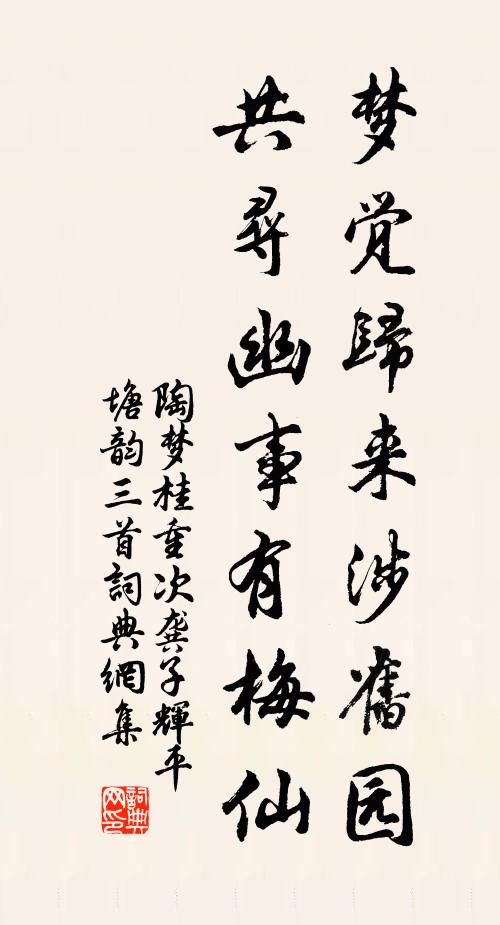 梦觉歸来涉舊园
共尋幽事有梅仙
陶梦桂重次龚子輝平
塘韵三首詞典網集
詞典网印